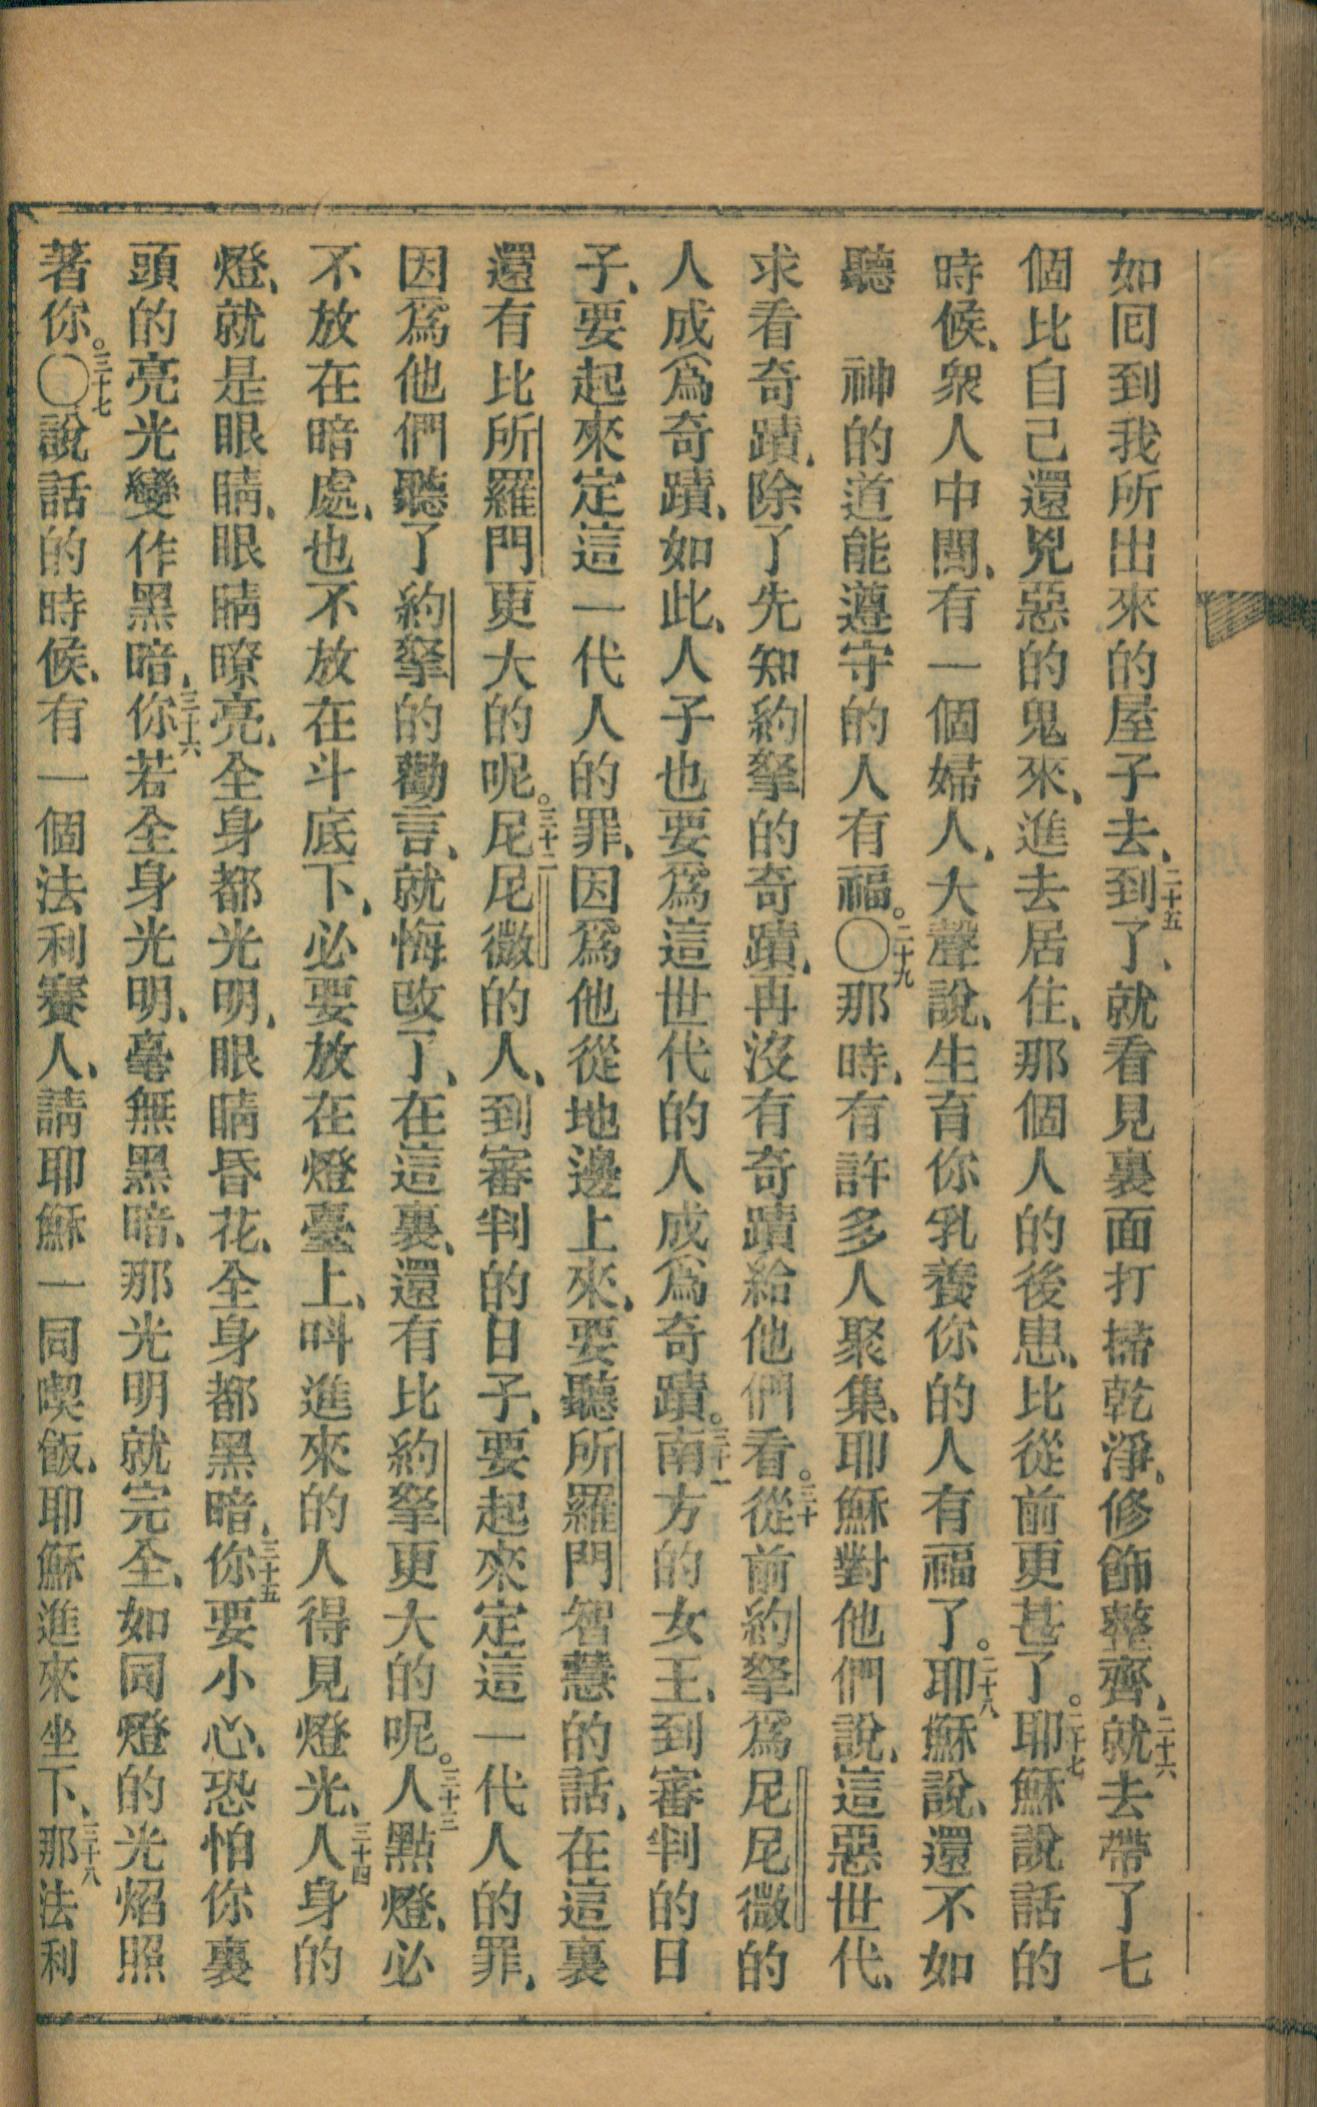 如回到我所出來的屋子去、二十五到了、就看見裏面打掃乾淨、修飾整齊、二十六就去帶了七
個比自己還兇惡的鬼來、進去居住、那個人的後患、比從前更甚了。二十七耶穌說話的
時候、衆人中間、有一個婦人、大聲說、生育你乳養你的人有福了。二十八耶穌說、還不如
聽　神的道能遵守的人有福。二十九〇那時、有許多人聚集、耶穌對他們說、這惡世代、
求看奇蹟、除了先知約拏的奇蹟、再沒有奇蹟給他們看。三十從前約拏爲尼尼微的
人成爲奇蹟、如此、人子也要爲這世代的人成爲奇蹟。三十一南方的女王、到審判的日
子、要起來定這一代人的罪、因爲他從地邊上來、要聽所羅門智慧的話、在這裏
還有比所羅門更大的呢。三十二尼尼微的人、到審判的日子、要起來定這一代人的罪、
因爲他們聽了約拏的勸言、就悔改了、在這裏、還有比約拏更大的呢。三十三人點燈、必
不放在暗處、也不放在斗底下、必要放在燈臺上、呌進來的人得見燈光、三十四人身的
燈、就是眼睛、眼睛暸亮、全身都光明、眼睛昏花、全身都黑暗、三十五你要小心、恐怕你裏
頭的亮光變作黑暗、三十六你若全身光明、毫無黑暗、那光明就完全、如同燈的光焰照
著你。三十七〇說話的時候、有一個法利賽人、請耶穌一同喫飯、耶穌進來坐下、三十八那法利